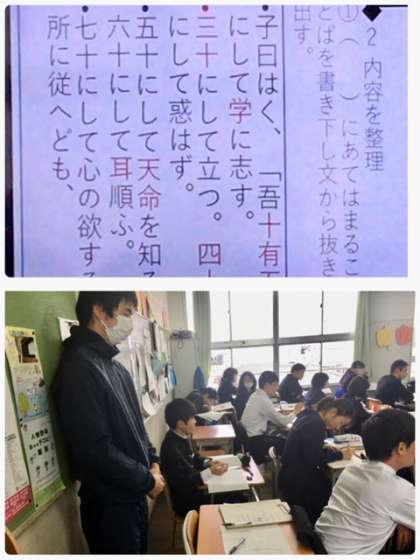 ◆2 内容を整理
①（　　）にあてはまるこ
とばを書き下し文から抜き
出す。
・子曰はく、「吾十有五
にして学に志す。
・三十にして立つ。四十
にして惑はず。
・五十にして天命を知る
・六十にして耳順ふ。
・七十にして心の欲する
所に従へども、